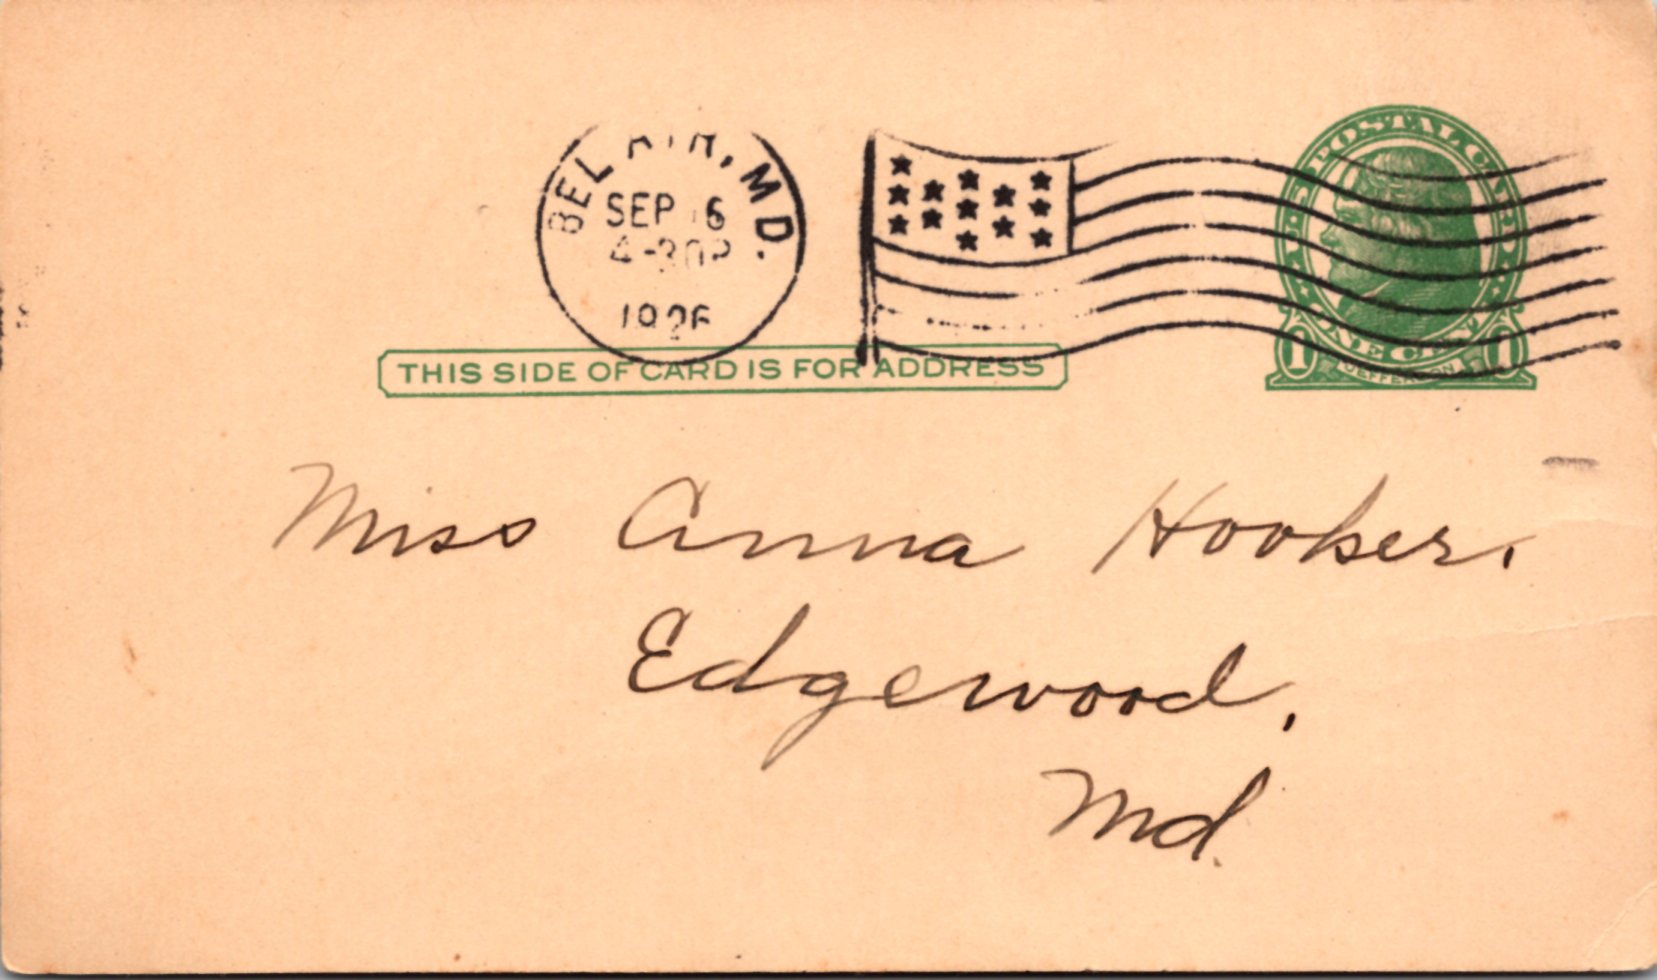 BEL AIR, MD.
SEP 16
4-30P
1926
U.S. POSTAL CARD
ONE CENT
1 JEFFERSON 1
THIS SIDE OF CARD IS FOR ADDRESS
Miss Anna Hooker.
Edgewood,
Md.